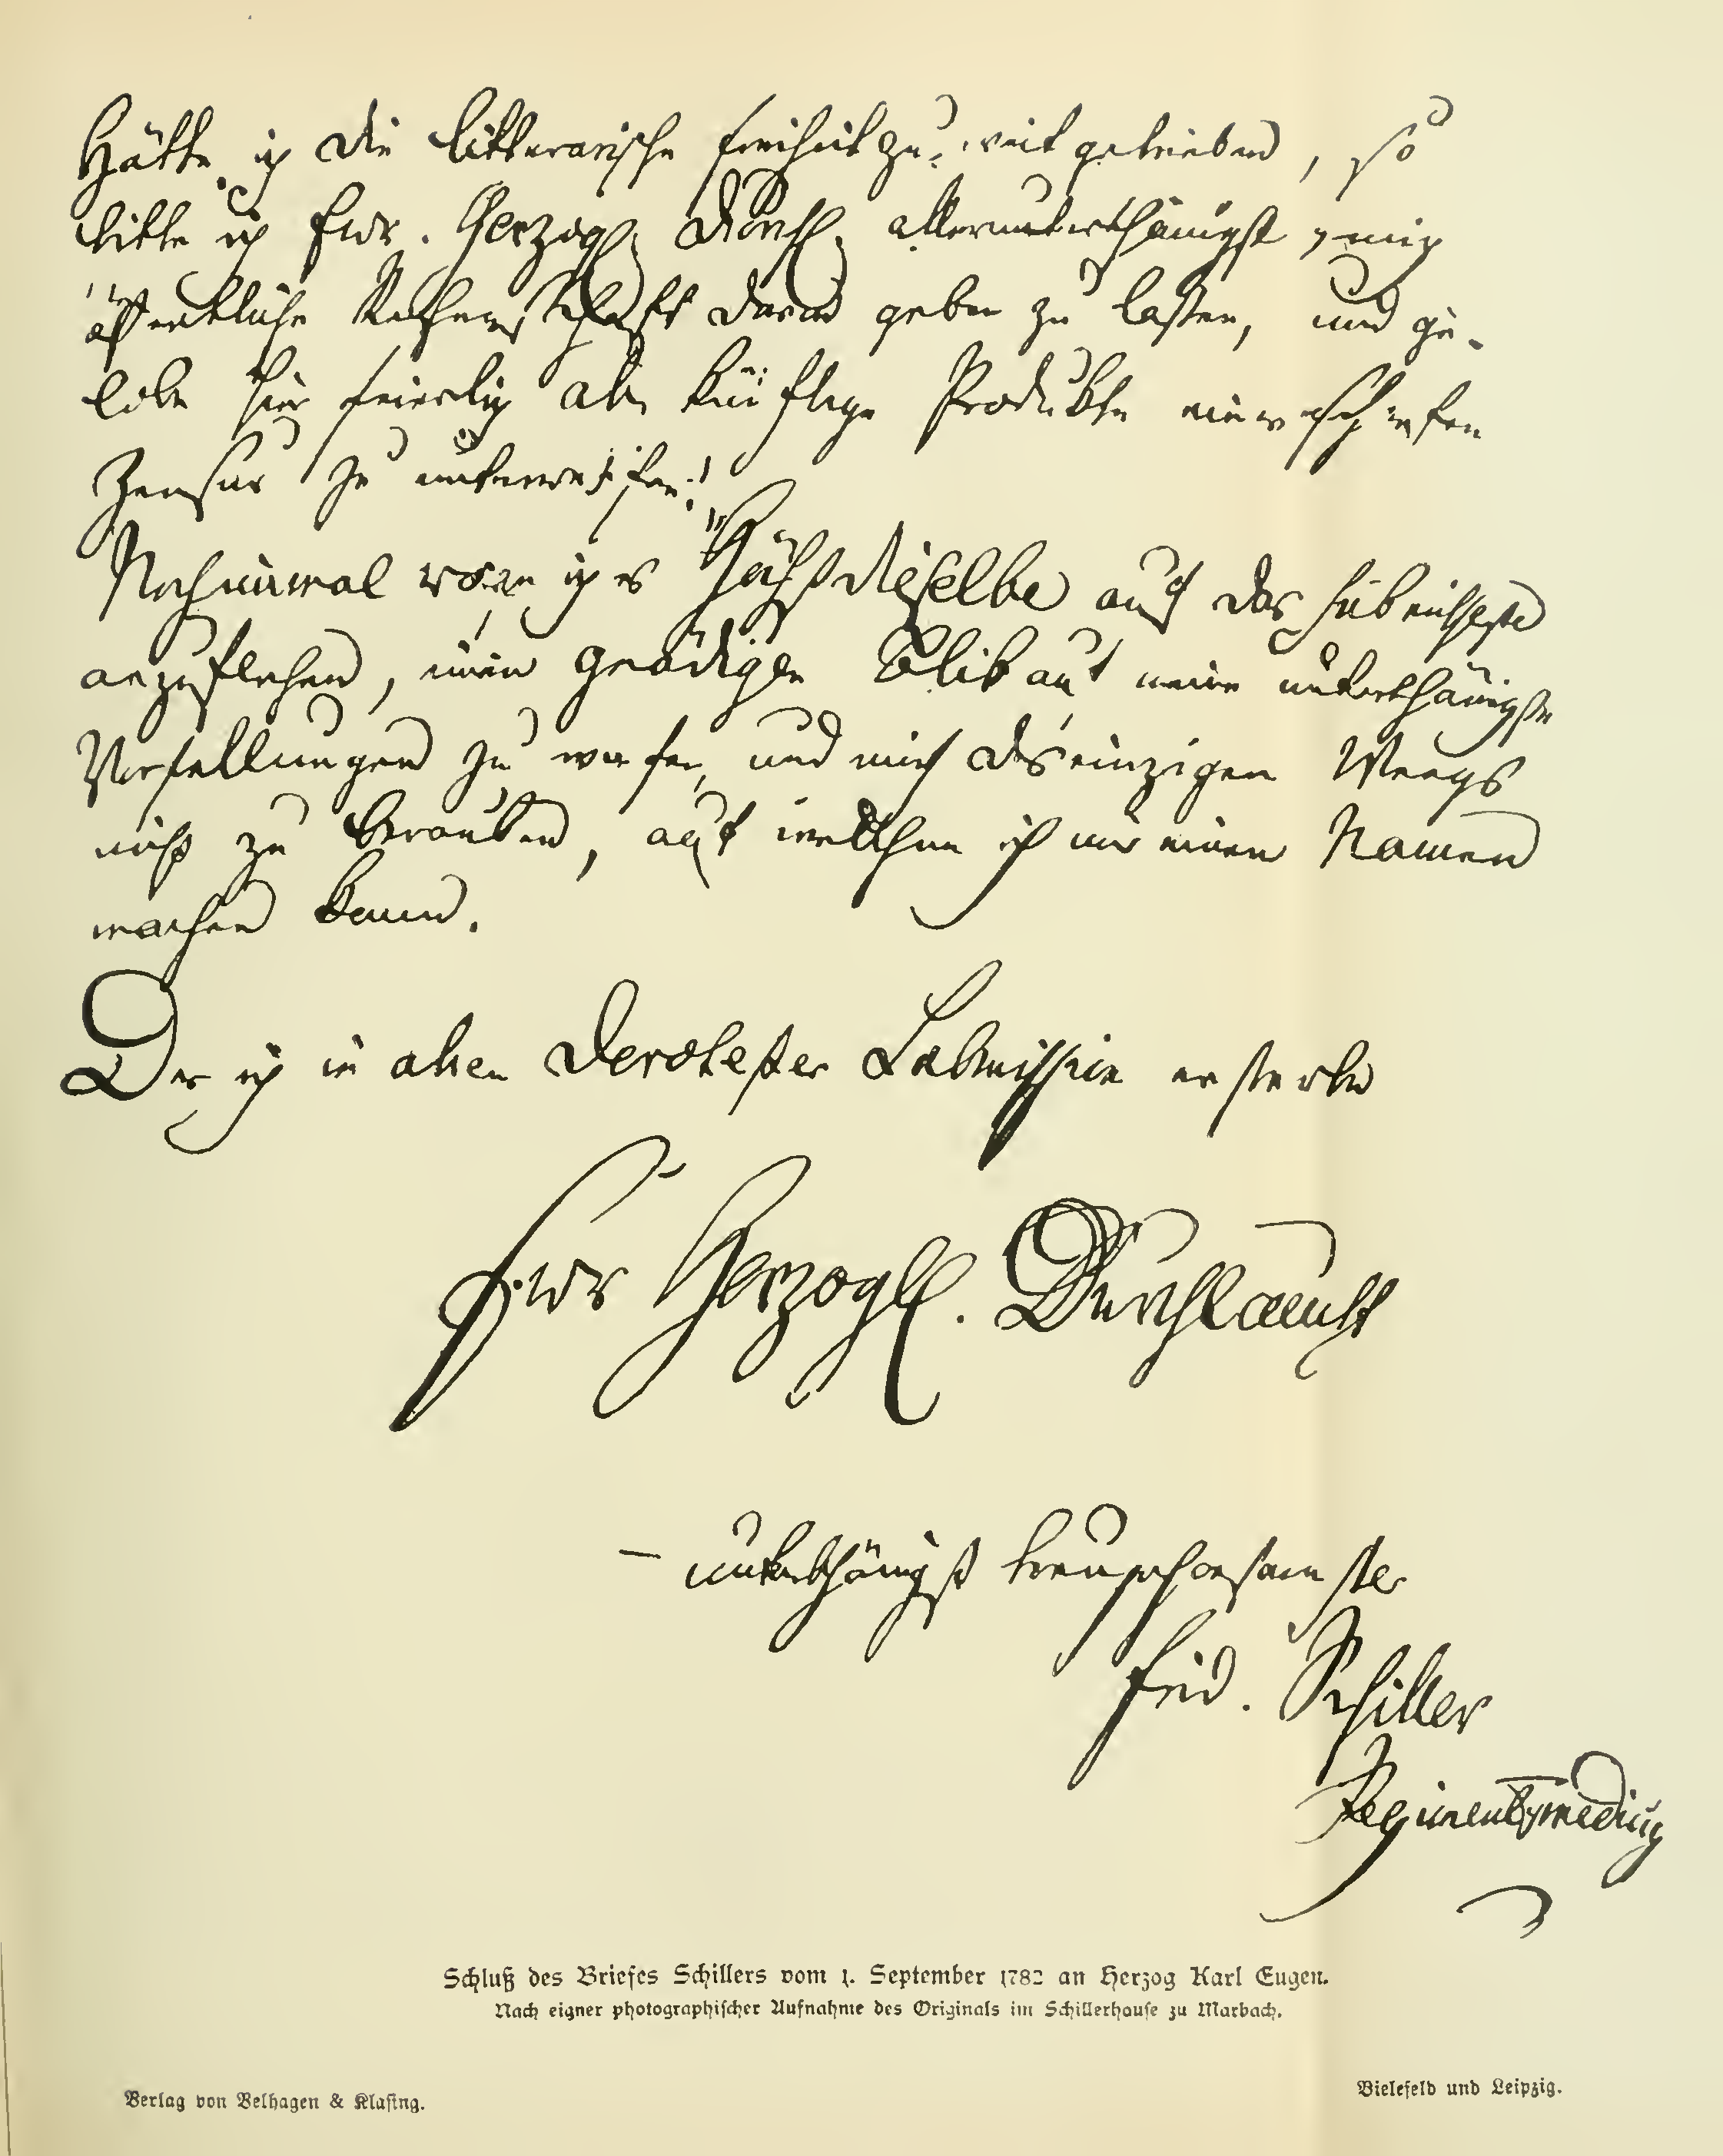 Hätte ich die litterarische Freiheit zu weit getrieben, so
bitte ich Ewr. Herzogl. Durchl. allerunterthänigst, mich
öffentliche Rechenschaft davon geben zu lassen, und ge-
lobe hier feierlich alle künftige Produkte einer scharfen
Zensur zu unterwerfen.
Noch einmal wage ich es Höchstdieselbe auf das submisseste
anzuflehen, einen gnädigen Blik auf meine unterthänigste
Vorstellungen zu werfen, und mich des einzigen Weegs
nicht zu berauben, auf welchem ich mir einen Namen
machen kann.
Der ich in aller devotester Submission ersterbe
Ewr Herzogl. Durchlaucht
– unterthänigst treugehorsamster
Frid. Schiller
Regimentsmedicus
Schluß des Briefes Schillers vom 1. September 1782 an Herzog Karl Eugen.
Nach eigner photographischer Aufnahme des Originals im Schillerhause zu Marbach.
Verlag von Velhagen & Klasing.
Bielefeld und Leipzig.